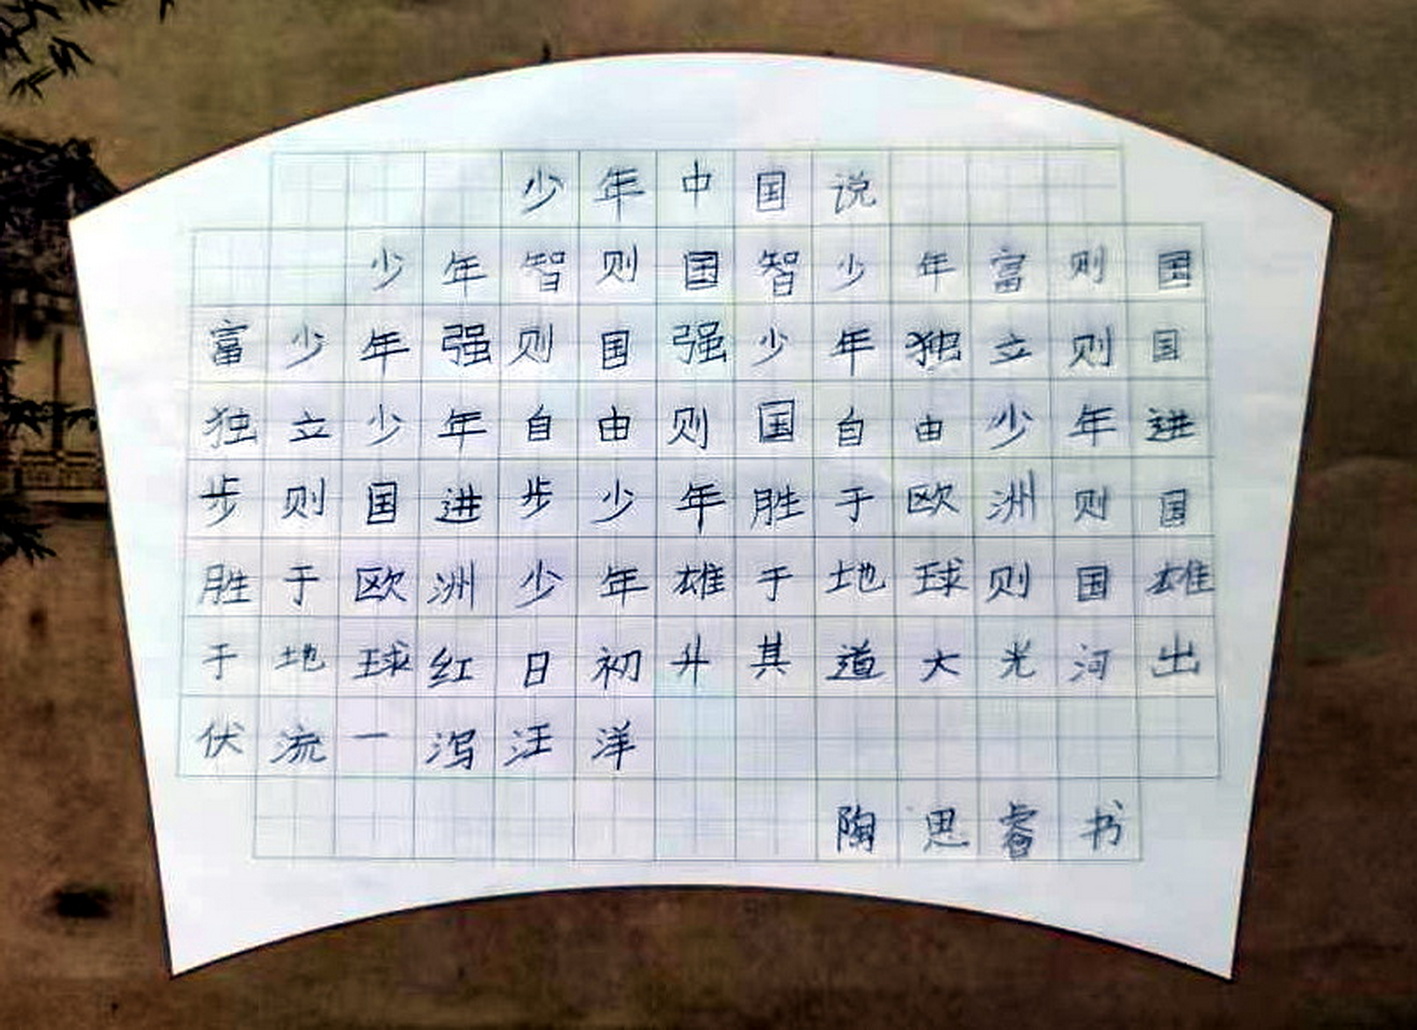 少年中国说
少年智则国智少年富则国
富少年强则国强少年独立则国
独立少年自由则国自由少年进
步则国进步少年胜于欧洲则国
胜于欧洲少年雄于地球则国雄
于地球红日初升其道大光河出
伏流一泻汪洋
陶思睿书